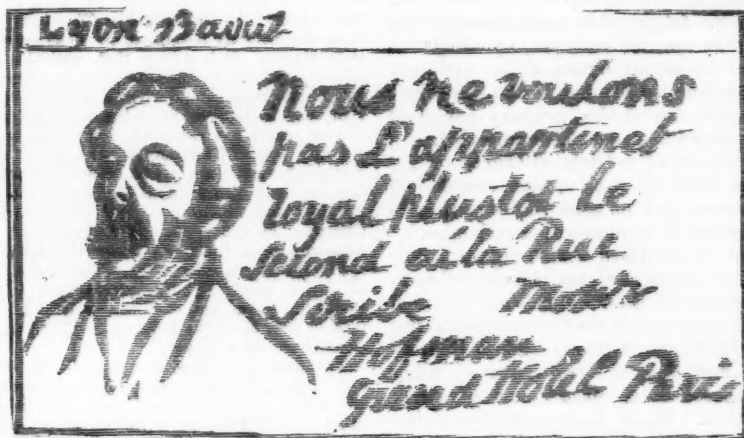 Lyon 13 aout
Nous ne voulons
pas L'appartinet
royal plustot Le
second ou la Rue
Scribe
Hofman
Grand Hotel Paris